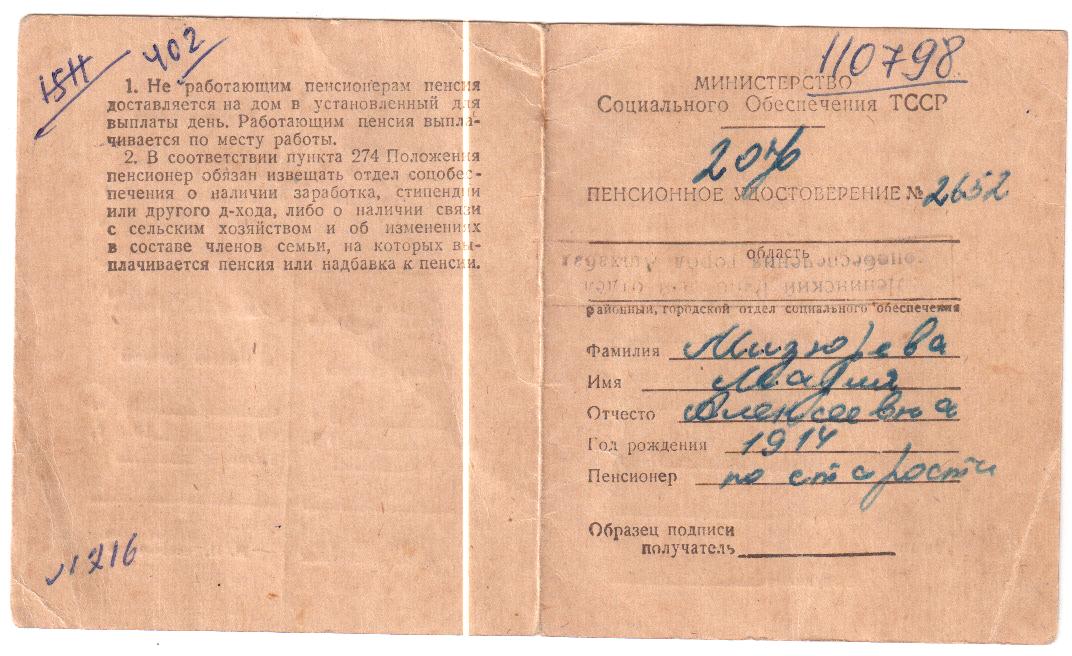 402
1. Не работающим пенсионерам пенсия
доставляется на дом в установленный для
выплаты день. Работающим пенсия выпла-
чивается по месту работы.
2. В соответствии пункта 274 Положения
пенсионер обязан извещать отдел соцобес-
печения о наличии заработка, стипендии
или другого д-хода, либо о наличии связи
с сельским хозяйством и об изменениях
в составе членов семьи, на которых вы-
плачивается пенсия или надбавка к пенсии.
110798
МИНИСТЕРСТВО
Социального Обеспечения ТССР
ПЕНСИОННОЕ УДОСТОВЕРЕНИЕ № 2652
область
районный, городской отдел социального обеспечения
Фамилия Мизюрева
Имя Мария
Отчесто Алексеевна
Год рождения 1914
Пенсионер по старости
Образец подписи
получатель